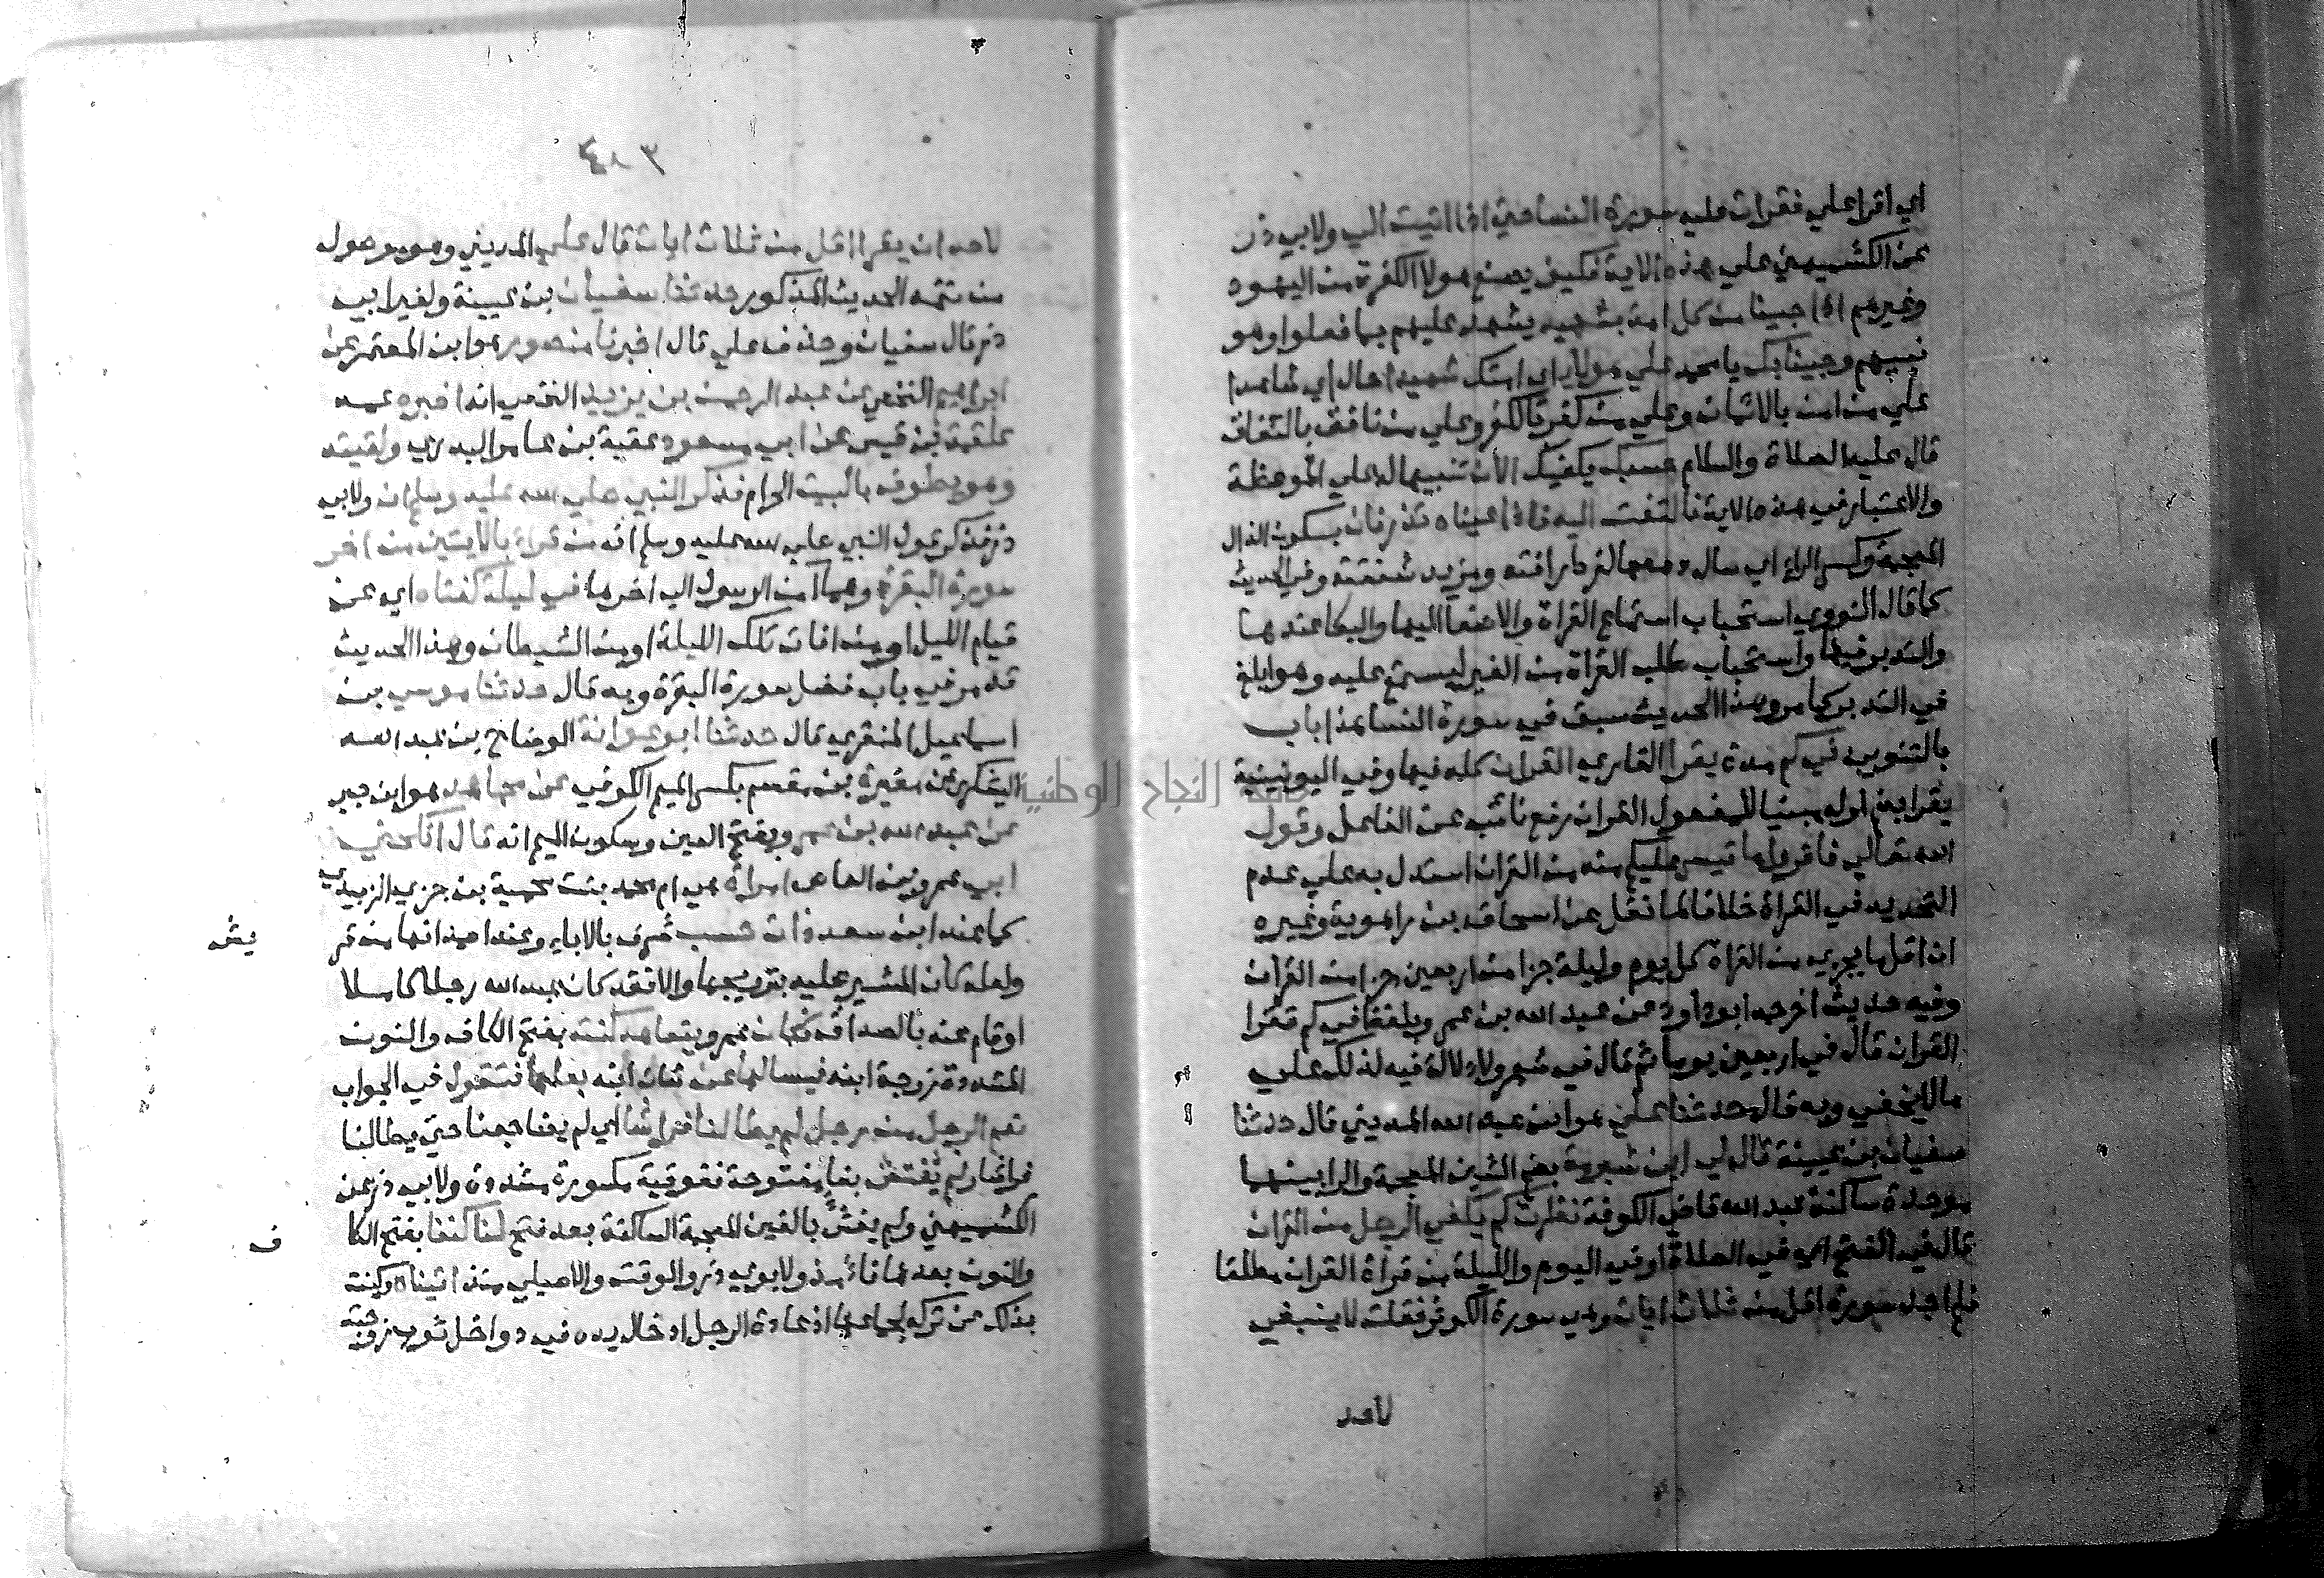 اي اقرا علي فقرات عليه سورة النسا حتي اذا اتيت الي ولابي ذر
عن الكشميهني علي هذه الاية فكيف يصنع هولا الكفرة من اليهود
وغيرهم اذا جينا من كل امة بشهيد يشهد عليهم بما فعلوا وهو
نبيهم وجينا بك يا محمد علي هولاء اي امتك شهيدا حال اي شاهدا
علي من امن بالايمان وعلي من كفر بالكفر وعلي من نافق بالنفاق
قال عليه الصلاة والسلام حسبك يكفيك الان تنبيها له علي الموعظة
والاعتبار في هذه الاية فالتفت اليه فاذا عيناه تذرفان بسكون الذال
المعجمة وكسر الراء اي سال دمعهما لفرط رافته ومزيد شفقته وفي الحديث
كما قال النووي استحباب استماع القراة والاصغا اليها والبكا عندها
والتدبر فيها واستحباب طلب القراة من الغير ليستمع عليه وهو ابلغ
في التدبر كما مر وهذا الحديث سبق في سورة النسا هذا باب
بالتنوين في كم مدة يقرا القاري القران كله فيها وفي اليونينية
يقرا بضم اوله مبنيا للمفعول القران رفع نائب عن الفاعل وقول
الله تعالي فاقروا ما تيسر عليكم منه من القران استدل به علي عدم
التحديد في القراة خلافا لما نقل عن اسحاق بن راهوية وغيره
ان اقل ما يجزي من القراة كل يوم وليلة جزا من اربعين جزا من القران
وفيه حديث اخرجه ابو داود عن عبد الله بن عمرو بلفظ في كم تقرا
القران قال في اربعين يوما ثم قال في شهر ولا دلالة فيه لذلك علي
ما لا يخفي وبه قال حدثنا علي هو ابن عبد الله المديني قال حدثنا
سفيان بن عيينة قال لي ابن شبرمة بضم الشين المعجمة والرا بينهما
موحدة ساكنة عبد الله قاضي الكوفة نظرت كم يكفي الرجل من القران
قال في الفتح اي في الصلاة او في اليوم والليلة من قراة القران مطلقا
فلم اجد سورة اقل من ثلاث ايات وهي سورة الكوثر فقلت لا ينبغي
لاحد
٤٨٣
لاحد ان يقرا اقل من ثلاث ايات قال علي المديني وهو موصول
من تتمه الحديث المذكور حدثنا سفيان بن عيينة ولغير ابي
ذر قال سفيان وحذف علي قال اخبرنا منصور هو ابن المعتمر عن
ابراهيم النخعي عن عبد الرحمن بن يزيد النخعي انه اخبره عمه
علقمة بن قيس عن ابي مسعود عقبة بن عامر البدري ولقيته
وهو يطوف بالبيت الحرام فذكر النبي صلي الله عليه وسلم ان ولابي
ذر فذكر قول النبي صلي الله عليه وسلم انه من قراء بالايتين من اخر
سورة البقرة وهما امن الرسول الي اخرها في ليلة كفتاه اي عن
قيام الليل او من افات تلك الليلة او من الشيطان وهذا الحديث
قد مر في باب فضل سورة البقرة وبه قال حدثنا موسي بن
اسماعيل المنقري قال حدثنا ابو عوانة الوضاح بن عبد الله
اليشكري عن مغيرة بن مقسم بكسر الميم الكوفي عن مجاهد هو ابن جبر
عن عبد الله بن عمرو بفتح العين وسكون الميم انه قال انكحني
ابي عمرو بن العاص امراة هي ام محمد بنت محمية بن جزي الزبيدي
كما عند ابن سعد ذات حسب شرف بالاباء وعند احمد انها من قر
يش
ولعله كان المشير عليه بتزويجها والا فقد كان عبد الله رجلا كاملا
او قام عنه بالصداق فكان عمرو يتعاهد كنته بفتح الكاف والنون
المشددة زوجة ابنه فيسالها عن شان ابنه بعلها فتقول في الجواب
نعم الرجل من رجل لم يطا لنا فراشا اي لم يضاجعنا حتي يطا لنا
فراشا ولم يفتش بفا مفتوحة ففوقية مكسورة مشددة ولابي ذر عن
الكشميهني ولم يغش بالغين المعجمة الساكنة بعد فتح لنا كنفا بفتح الكا
ف
والنون بعدها فاء مذ ولابوي ذر والوقت والاصيلي منذ اتيناه وكنت
بذلك عن تركه لجماعها اذ عادة الرجل ادخال يده في دواخل ثوب زوجته
جامعة النجاح الوطنية